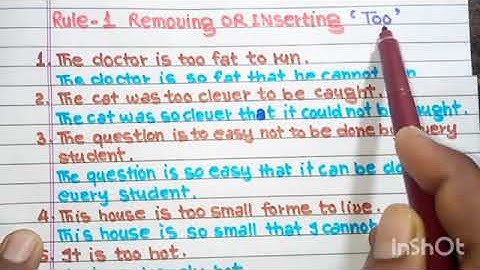 Rule-1 Removing OR Inserting 'Too'
1. The doctor is too fat to run.
The doctor is so fat that he cannot
2. The cat was too clever to be caught.
The cat was so clever that it could not be caught.
3. The question is to easy not to be done by every
student.
The question is so easy that it can be do
every student.
4. This house is too small forme to live.
This house is so small that I cannot
5. It is too hot.
InShOt